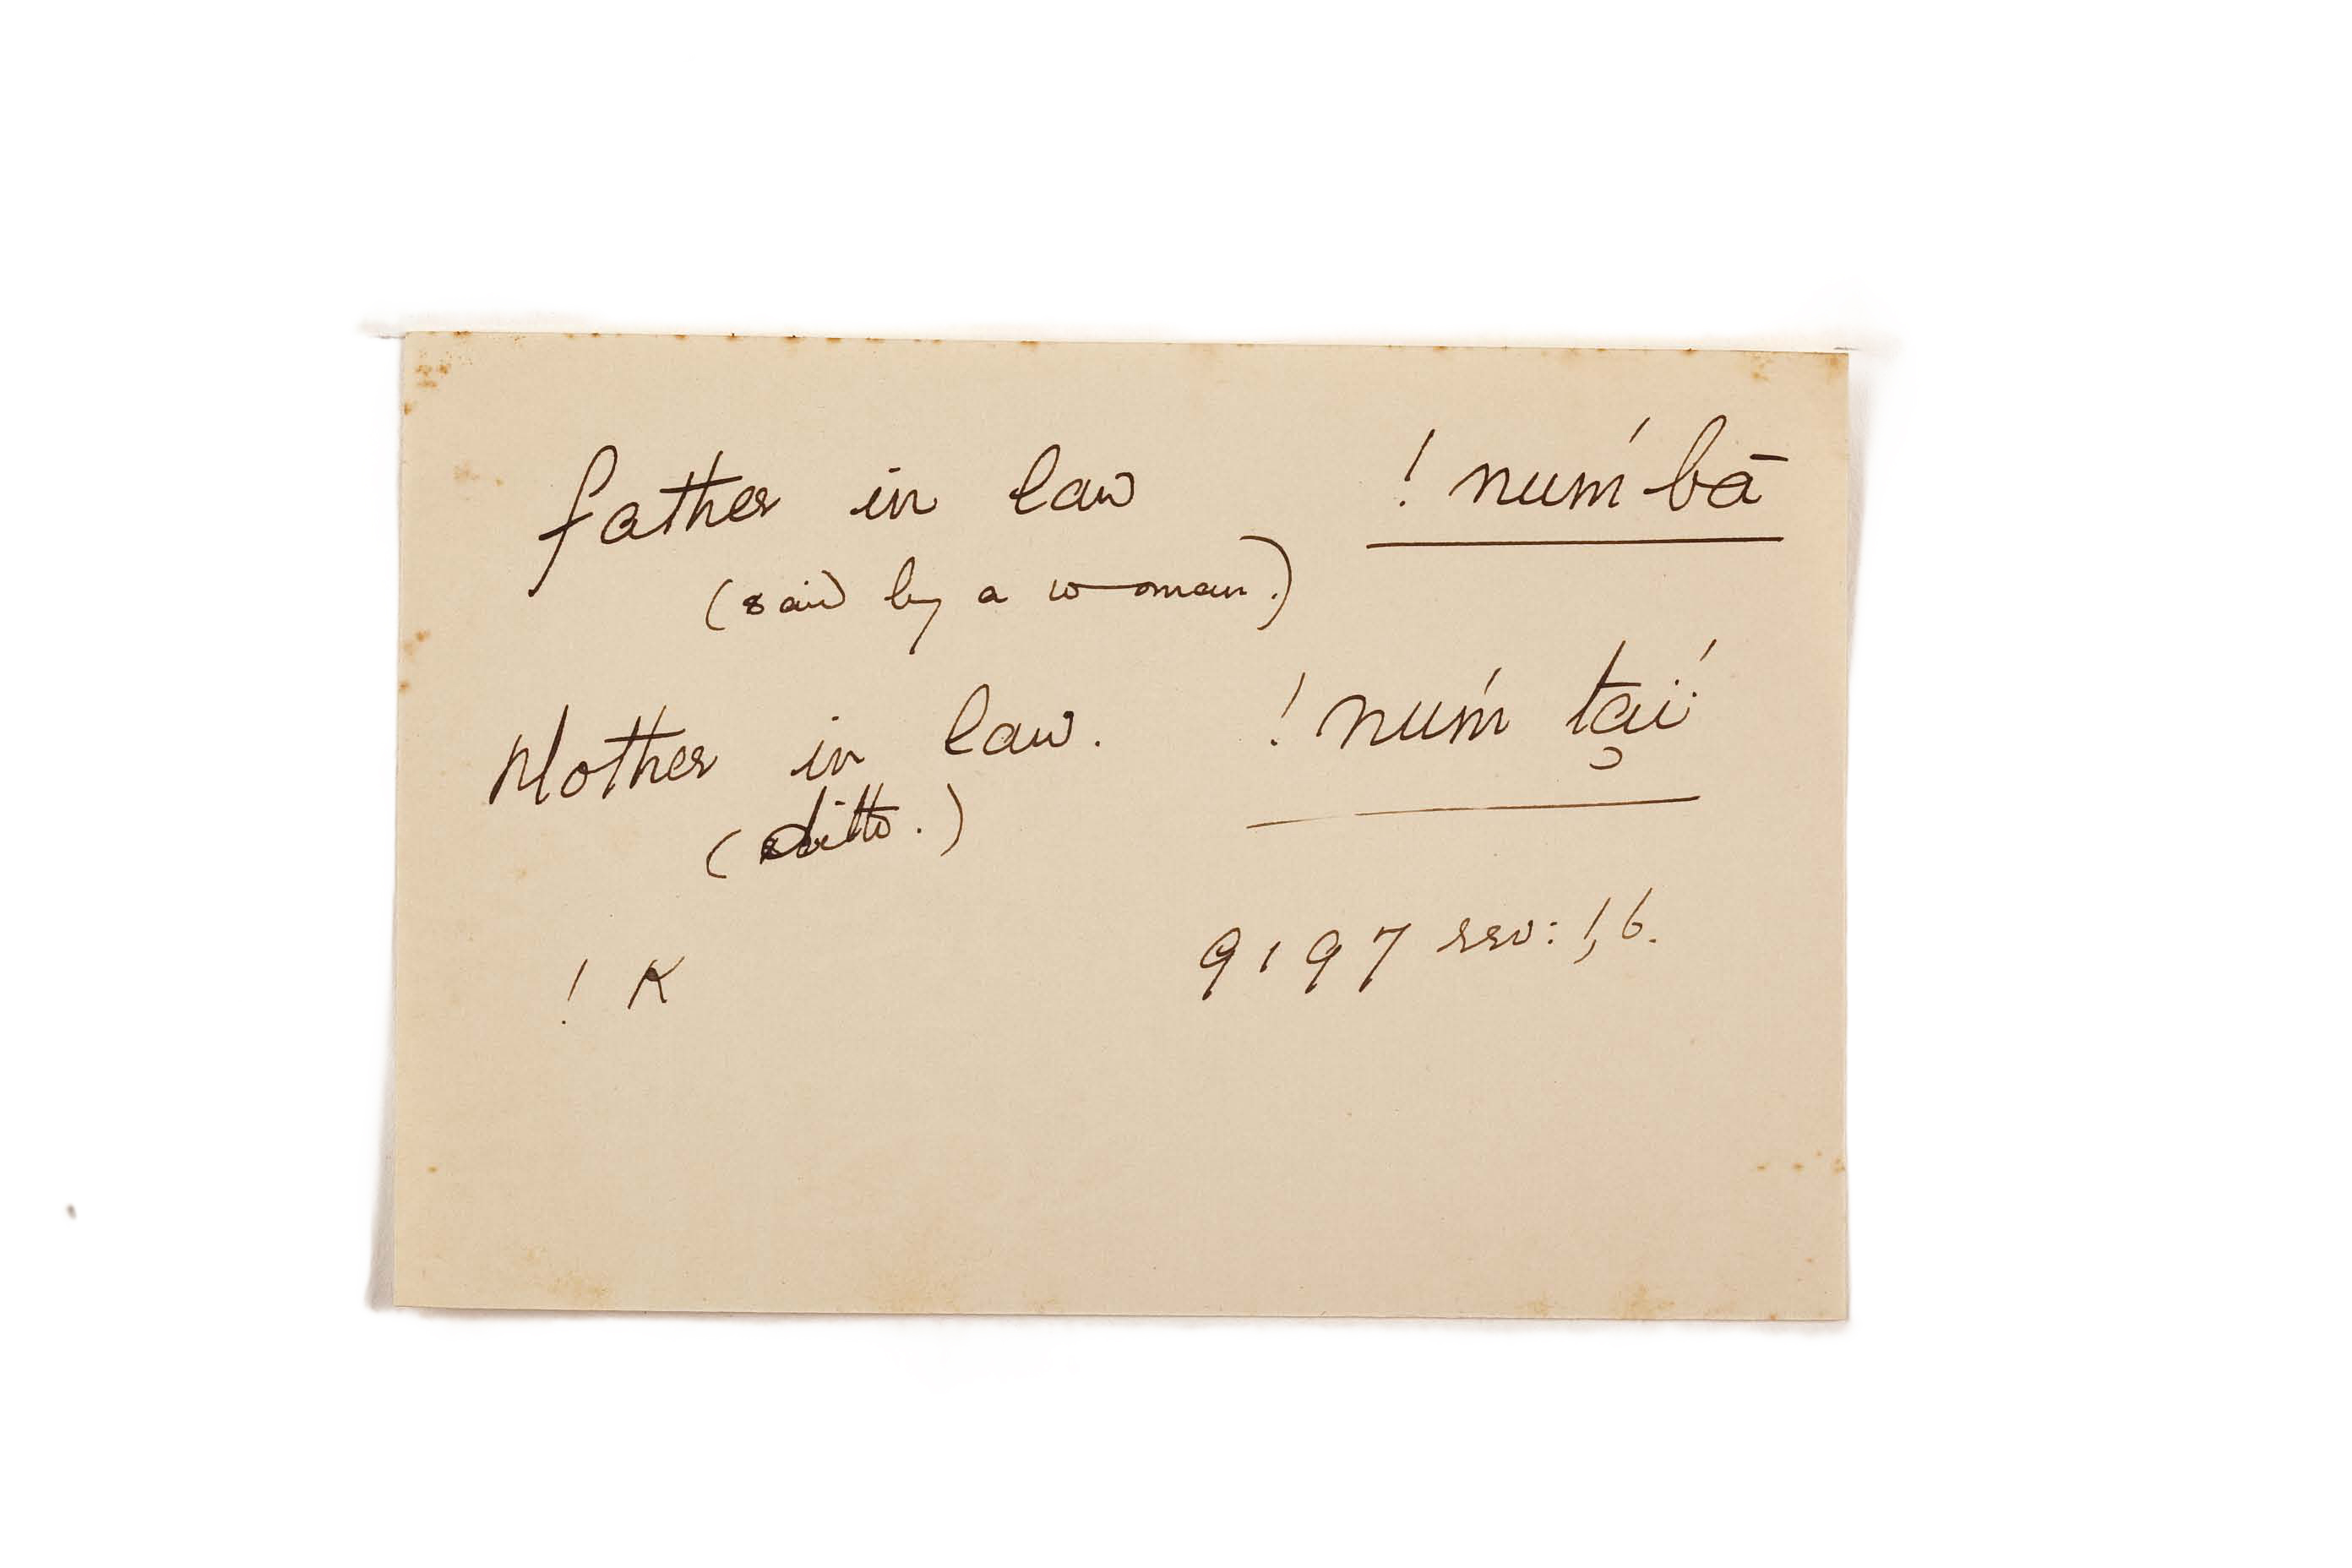 father in law ! num´bā
(said by a woman.)
Mother in law. ! núm ta̜ï´
(ditto.)
! K 9197 rev: 1,6.